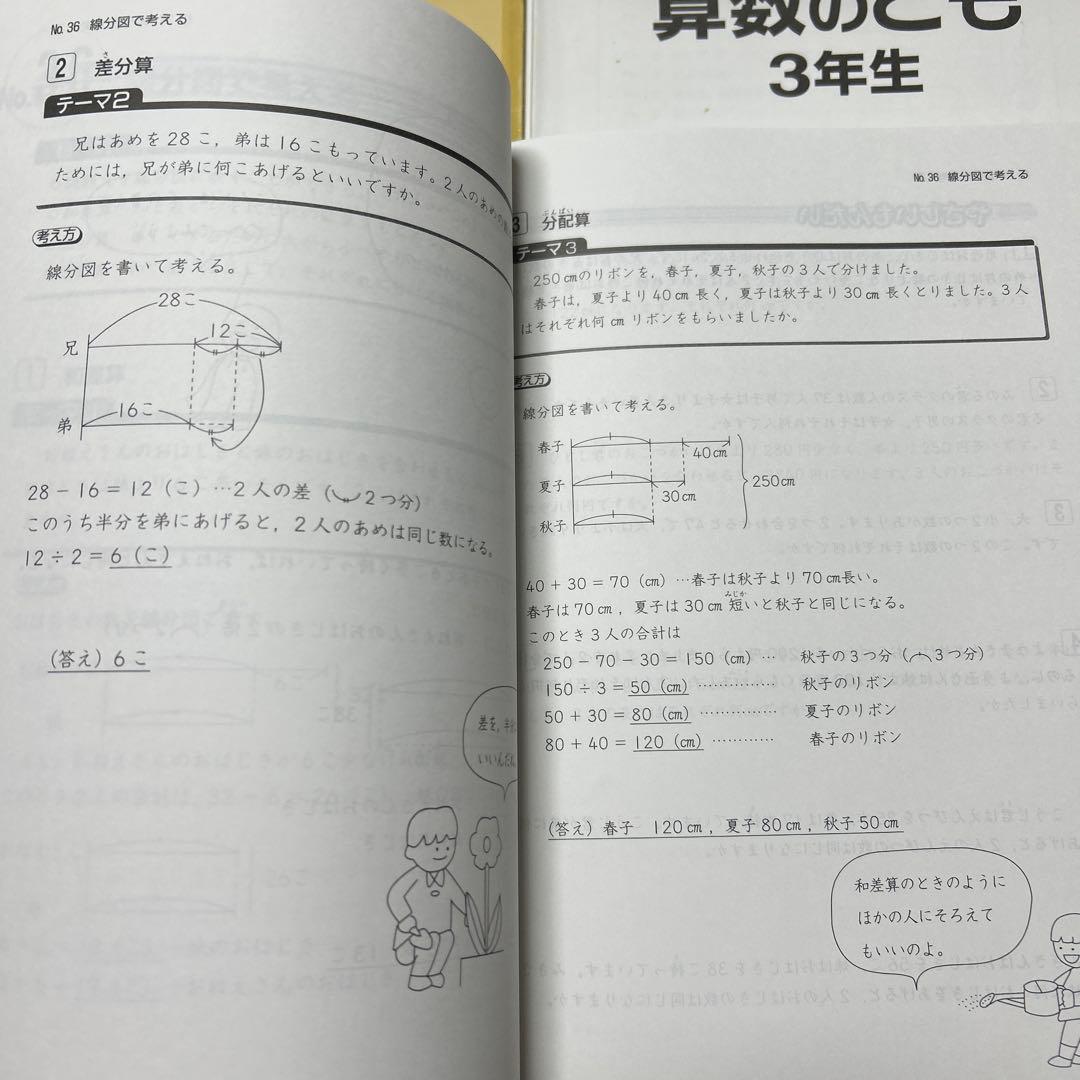 No.36 線分図で考える
2 差分算
さ
テーマ2
兄はあめを28こ，弟は16こもっています。2人のあめの
ためには，兄が弟に何こあげるといいですか。
考え方
線分図を書いて考える。
28こ
12こ
兄
16こ
弟
28－16＝12（こ）…2人の差（2つ分）
このうち半分を弟にあげると，2人のあめは同じ数になる。
12÷2＝6（こ）
（答え）6こ
差を，半分
いいんだ
算数のとも
3年生
No.36 線分図で考える
ぶんぱい
3 分配算
テーマ3
250cmのリボンを，春子，夏子，秋子の3人で分けました。
春子は，夏子より40cm長く，夏子は秋子より30cm長くとりました。3人
はそれぞれ何cmリボンをもらいましたか。
考え方
線分図を書いて考える。
春子
40cm
夏子
30cm
250cm
秋子
40＋30＝70（cm）…春子は秋子より70cm長い。
みじか
春子は70cm，夏子は30cm短いと秋子と同じになる。
このとき3人の合計は
250－70－30＝150（cm）… 秋子の3つ分（3つ分）
150÷3＝50（cm）…………… 秋子のリボン
50＋30＝80（cm）…………… 夏子のリボン
80＋40＝120（cm）………… 春子のリボン
（答え）春子 120cm，夏子80cm，秋子50cm
和差算のときのように
ほかの人にそろえて
もいいのよ。